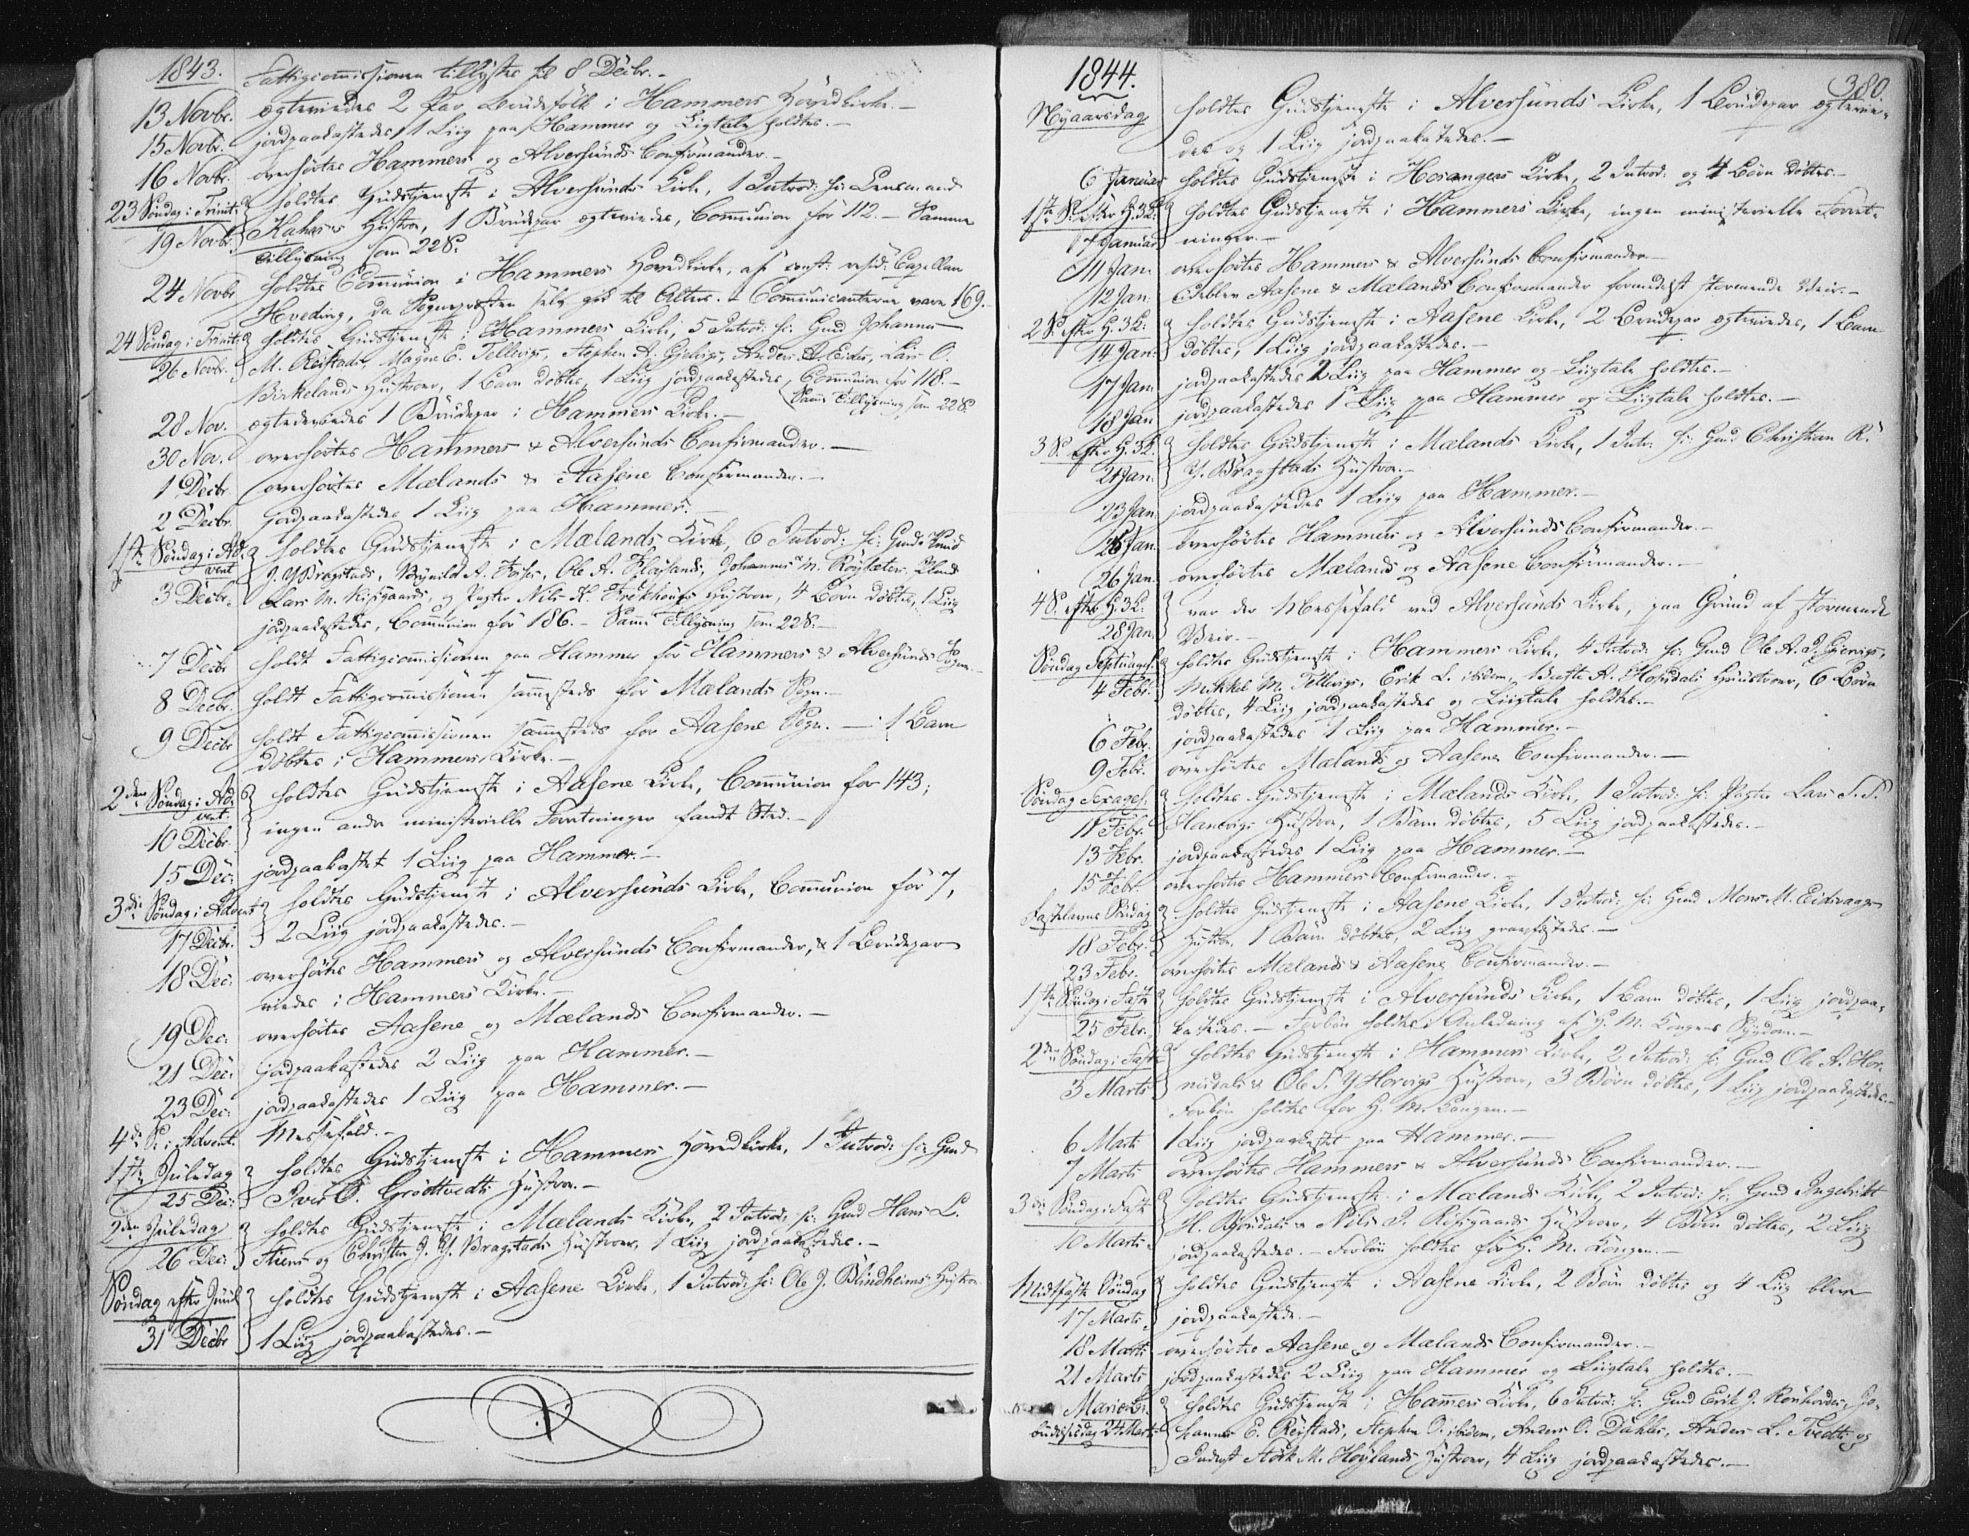 1843.
Fattigcommissionen tillystes til 8 Decbr.-
13 Novbr. ægteviedes 2 Par Brudefolk i Hammers Hovedkirke.-
15 Novbr. jordpaakastedes 1 Liig paa Hammer og Ligtale holdtes.-
16 Novbr. overhørtes Hammers og Alversunds Confirmander.-
23 Søndag i Trinit: holdtes Gudstjeneste i Alversunds Kirke, 1 Introd: sc: Lensmand
19 Novbr. Kahrs's Hustru, 1 Brudepar ægteviedes, Communion for 112.- Samme
Tillysning som 228.
24 Novbr. holdtes Communion i Hammers Hovedkirke, af const: resid: Capellan
Hveding, da Sognepræsten selv gik til Alters.- Communicanterne vare 169.-
24 Søndag i Trinit: holdtes Gudstjeneste i Hammers Kirke, 5 Introd: sc: Gmd Johannes
26 Novbr. M. Reistads, Magne E. Tellevigs, Stephen A. Gjervigs, Anders A. Eides, Lars O.
Birkelands Hustruer, 1 Barn døbtes, 1 Liig jordpaakastedes, Communion for 118.-
Samme Tillysning som 228.
28 Nov. ægteviedes 1 Brudepar i Hammers Kirke.-
30 Nov. overhørtes Hammers & Alversunds Confirmander.-
1 Decbr. overhørtes Mælands & Aasene Confirmander.-
2 Decbr. jordpaakastedes 1 Liig paa Hammer.-
1ste Søndag i Ad- holdtes Gudstjeneste i Mælands Kirke, 6 Introd: sc: Gmd: Knud
vent J. Y. Bragstads, Brynild A. Fosses, Ole A. Fløjlands, Johannes M.
3 Decbr. Lars M. Risgaards, og Nils K. Hustruer, 4 Børn døbtes, 1 Liig
jordpaakastedes, Communion for 186.- Samme Tillysning som 228.-
7 Decbr. holdt Fattigcommissionen paa Hammer for Hammers & Alversunds Sogne.-
8 Decbr. holdt Fattigcommissionen sammesteds for Mælands Sogn.-
9 Decbr. holdt Fattigcommissionen sammesteds for Aasene Sogn.- 1 Barn
døbtes i Hammers Kirke.-
2den Søndag i Ad- holdtes Gudstjeneste i Aasene Kirke, Communion for 143;
vent
10 Decbr. ingen andre ministerielle Forretninger fandt Sted.-
15 Dec: jordpaakastet 1 Liig paa Hammer.-
3die Søndag i Advent holdtes Gudstjeneste i Alversunds Kirke, Communion for 7,
17 Decbr. 2 Liig jordpaakastedes.-
18 Dec: overhørtes Hammers og Alversunds Confirmander, & 1 Brudepar
viedes i Hammers Kirke.-
19 Dec: overhørtes Aasene og Mælands Confirmander.-
21 Dec: jordpaakastedes 2 Liig paa Hammer.-
23 Dec: jordpaakastedes 1 Liig paa Hammer.-
4de S. i Advent. Messefald.-
1ste Juledag holdtes Gudstjeneste i Hammers Hovedkirke, 1 Introd: sc: Gmd
25 Dec: Iver O. Grøttvedts Hustru.-
2den Juledag holdtes Gudstjeneste i Mælands Kirke, 2 Introd: sc: Gmd Hans L.
26 Dec: og Christen J. Y. Bragstads Hustruer, 1 Liig jordpaakastedes.-
Søndag efter Juul holdtes Gudstjeneste i Aasene Kirke, 1 Introd: sc: Ole J. Blindheims Hustru
31 Decbr. 1 Liig jordpaakastedes.-
1844.
380
Nyaarsdag holdtes Gudstjeneste i Alversunds Kirke, 1 Brudepar ægtevie-
des og 1 Liig jordpaakastedes.-
6 Januar holdtes Gudstjeneste i Hosangers Kirke, 2 Introd: og 4 Børn døbtes.-
1ste S. efter H. 3 K: holdtes Gudstjeneste i Hammers Kirke, ingen ministerielle Forret-
7 Januar ninger.-
11 Jan. overhørtes Hammers & Alversunds Confirmander.-
12 Jan. Udeblev Aasene & Mælands Confirmander formedelst stormende Veir.-
2 S. efter H. 3 K: holdtes Gudstjeneste i Aasene Kirke, 2 Brudepar ægteviedes, 1 Barn
14 Jan. døbtes, 1 Liig jordpaakastedes.-
17 Jan. jordpaakastedes 2 Liig paa Hammer og Liigtale holdtes.-
18 Jan jordpaakastedes 1 Liig paa Hammer og Liigtale holdtes.-
3 S. efter H. 3 K. holdtes Gudstjeneste i Mælands Kirke, 1 Intr: sc: Gmd Christian R.
21 Jan. Y. Bragstads Hustru.-
23 Jan jordpaakastedes 1 Liig paa Hammer.-
25 Jan. overhørtes Hammers og Alversunds Confirmander.-
26 Jan. overhørtes Mælands og Aasene Confirmander.-
4 S. efter H. 3 K: var der Messefald ved Alversunds Kirke, paa Grund af stormende
28 Jan. Veir.-
Søndag Septuages. holdtes Gudstjeneste i Hammers Kirke, 4 Introd: sc: Gmd Ole A. D. Gjervigs,
4 Febr. Mikkel M. Tellevigs, Erik L. ibidem, A. Hosdals Hustruer, 6 Børn
døbtes, 4 Liig jordpaakastedes og Liigtale holdtes.-
6 Febr. jordpaakastedes 1 Liig paa Hammer.-
9 Febr. overhørtes Mælands og Aasene Confirmander.-
Søndag Sexages. holdtes Gudstjeneste i Mælands Kirke, 1 Introd: sc: Lars S. S.
11 Febr. Hanevigs Hustru, 1 Barn døbtes, 5 Liig jordpaakastedes.-
13 Febr. jordpaakastedes 1 Liig paa Hammer.-
15 Febr. overhørtes Hammers Confirmander.-
Fastelavns Søndag holdtes Gudstjeneste i Aasene Kirke, 1 Introd: sc: Gmd Mons M. Eidsvaags
18 Febr. Hustru, 1 Barn døbtes, 2 Liig gravfæstedes.-
23 Febr. overhørtes Mælands & Aasene Confirmander.-
1ste Søndag i Faste holdtes Gudstjeneste i Alversunds Kirke, 1 Barn døbtes, 1 Liig jordpaa-
25 Febr. kastedes.- Forbøn holdtes i Anledning af H. M. Kongens Sygdom.-
2den Søndag i Faste holdtes Gudstjeneste i Hammers Kirke, 2 Introd: sc: Gmd Ole A. Hor-
3 Marts nesdals & Ole S. Y. Hervigs Hustruer, 3 Børn døbtes, 1 Liig jordpaakastedes.-
Forbøn holdtes for H. M. Kongen.-
6 Marts 1 Liig jordpaakastet paa Hammer.-
7 Marts overhørtes Hammers & Alversunds Confirmander.-
3die Søndag i Faste holdtes Gudstjeneste i Mælands Kirke, 2 Introd: sc: Gmd Ingebrikt
10 Marts H. & Nils J. Risgaards Hustruer, 4 Børn døbtes, 2 Liig
jordpaakastedes.- Forbøn holdtes for H. M. Kongen.-
Midfaste Søndag holdtes Gudstjeneste i Aasene Kirke, 2 Børn døbtes og 4 Liig bleve
17 Marts. jordpaakastede.-
18 Marts overhørtes Aasene og Mælands Confirmander.-
21 Marts jordpaakastedes 2 Liig paa Hammer og Liigtale holdtes.-
Mariæ Be- holdtes Gudstjeneste i Hammers Kirke, 6 Introd: sc: Gmd Erik J. Jo-
budelsesdag 24 Marts hannes E. Reistads, Stephen O. ibidem, Anders O. Dahles, Anders L. Tvedts og
Inderst Størk M. Høylands Hustruer, 4 Liig jordpaakastedes.-